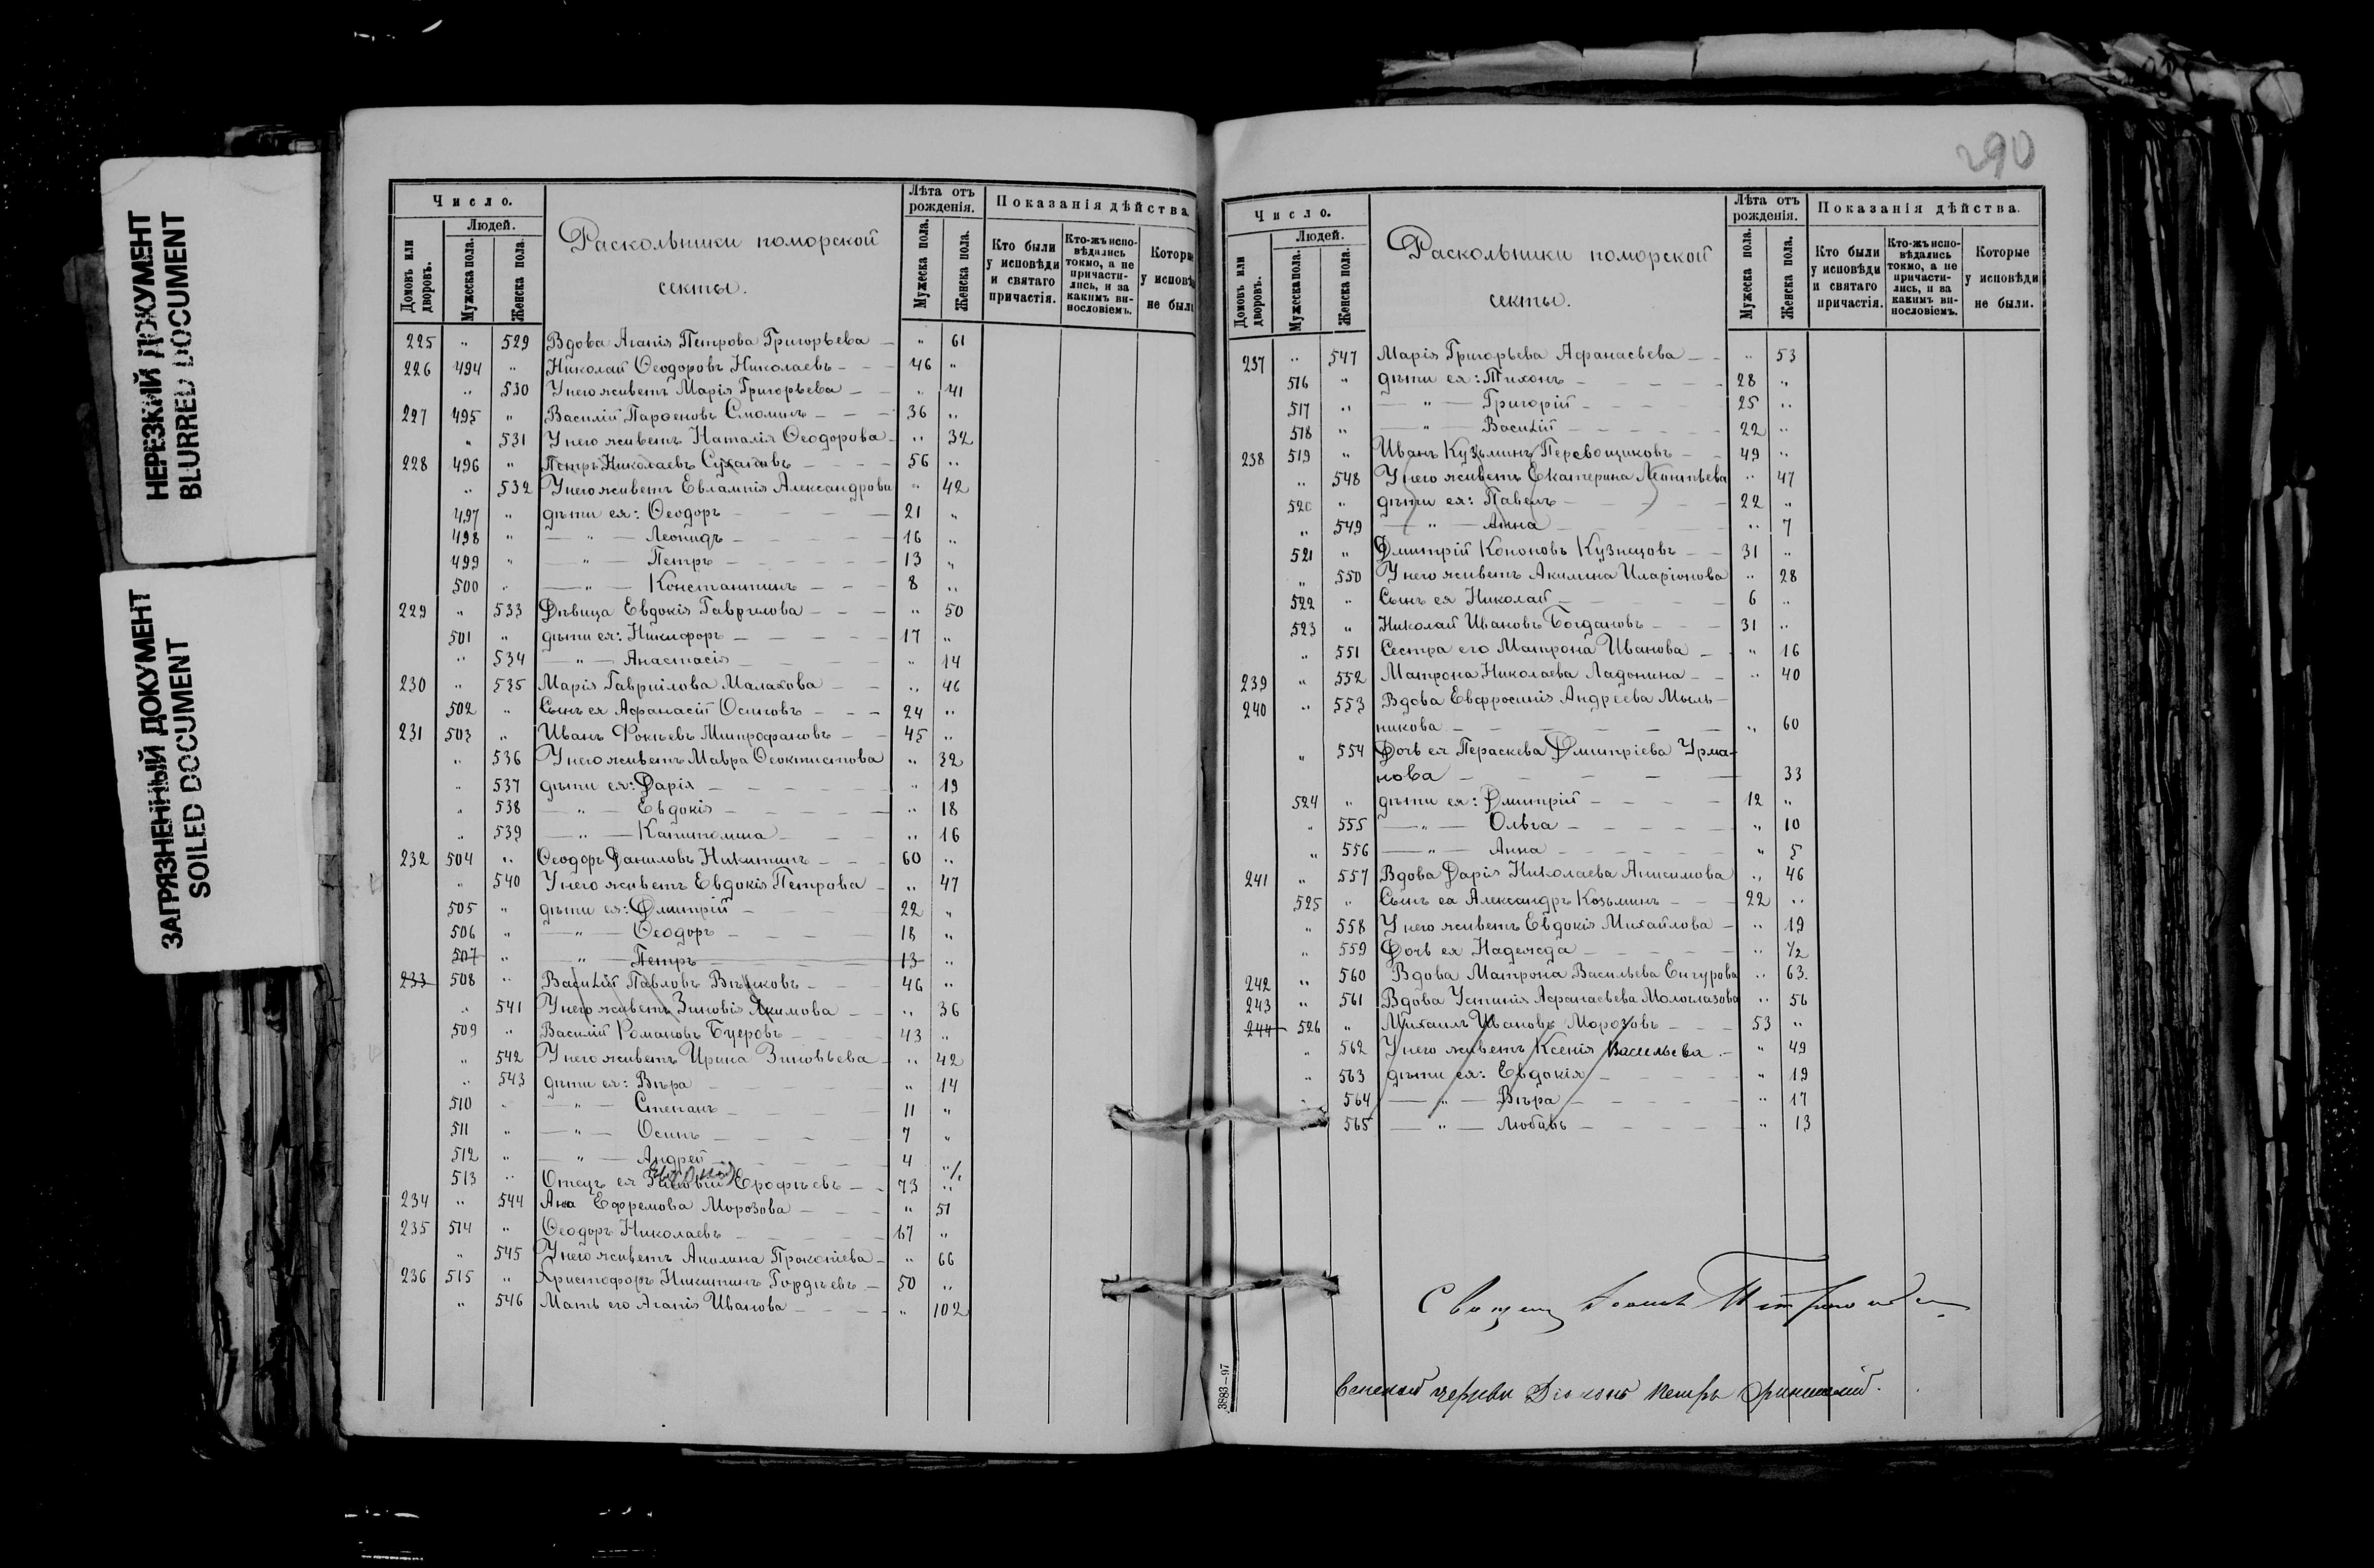 НЕРЕЗКИЙ ДОКУМЕНТ
BLURRED DOCUMENT
ЗАГРЯЗНЕННЫЙ ДОКУМЕНТ
SOILED DOCUMENT
Число.
Людей.
Домовъ или дворовъ.
Мужеска пола.
Женска пола.
Раскольники поморской
секты.
Лѣта отъ рожденія.
Мужеска пола.
Женска пола.
Показанія дѣйства.
Кто были у исповѣди и святаго причастія.
Кто-жъ испо-вѣдались токмо, а не причасти-лись, и за какимъ ви-нословіемъ.
225 " 529 Вдова Агапія Петрова Григорьева — " 61
226 494 " Николай Ѳеодоровъ Николаевъ — 46 "
" 530 У него живетъ Марія Григорьева — " 41
227 495 " Василій Парѳеновъ Смолинъ — 36 "
" 531 У него живетъ Наталія Ѳеодорова — " 32
228 496 " Петръ Николаевъ — 56 "
" 532 У него живетъ Евлампія Александрова " 42
497 " дѣти ея: Ѳеодоръ — 21 "
498 " — " — Леонидъ — 16 "
499 " — " — Петръ — 13 "
500 " — " — Константинъ — 8 "
229 " 533 Дѣвица Евдокія Гавриилова — " 50
501 " дѣти ея: Никифоръ — 17 "
" 534 — " — Анастасія — " 14
230 " 535 Марія Гавриілова Малахова — " 46
502 " Сынъ ея Афанасій Осиповъ — 24 "
231 503 " Иванъ Фокіевъ Митрофановъ — 45 "
" 536 У него живетъ Мавра Ѳеоктистова " 32
" 537 дѣти ея: Дарія — " 19
" 538 — " — Евдокія — " 18
" 539 — " — Капитолина — " 16
232 504 " Ѳеодоръ Даниловъ Никитинъ — 60 "
" 540 У него живетъ Евдокія Петрова — " 47
505 " дѣти ея: Дмитрій — 22 "
506 " — " — Ѳеодоръ — 18 "
507 " — " — Петръ — 13 "
233 508 " Василій Павловъ — 46 "
" 541 У него живетъ Зиновія Якимова — " 36
509 " Василій Романовъ Буеровъ — 43 "
" 542 У него живетъ Ирина Зиновьева — " 42
" 543 дѣти ея: Вѣра — " 14
510 " — " — Степанъ — 11 "
511 " — " — Осипъ — 7 "
512 " — " — Андрей — 4 "
513 " Отецъ ея Ерофѣевъ — 73 "
234 " 544 Анна Ефремова Морозова — " 51
235 514 " Ѳеодоръ Николаевъ — 67 "
" 545 У него живетъ Акилина Прокопіева — " 66
236 515 " Христофоръ Никитинъ Гордѣевъ — 50 "
" 546 Мать его Агапія Иванова — " 102
290
Число.
Людей.
Домовъ или дворовъ.
Мужеска пола.
Женска пола.
Раскольники поморской
секты.
Лѣта отъ рожденія.
Мужеска пола.
Женска пола.
Показанія дѣйства.
Кто были у исповѣди и святаго причастія.
Кто-жъ испо-вѣдались токмо, а не причасти-лись, и за какимъ ви-нословіемъ.
Которые у исповѣди не были.
237 " 547 Марія Григорьева Афанасьева — " 53
516 " дѣти ея: Тихонъ — 28 "
517 " — " — Григорій — 25 "
518 " — " — Василій — 22 "
238 519 " Иванъ Кузьминъ Перевощиковъ — 49 "
" 548 У него живетъ Екатерина Леонтьева " 47
520 " дѣти ея: Павелъ — 22 "
" 549 — " — Анна — " 7
521 " Дмитрій Кононовъ Кузнецовъ — 31 "
" 550 У него живетъ Акилина Иларіонова " 28
522 " Сынъ ея Николай — 6 "
523 " Николай Ивановъ Богдановъ — 31 "
" 551 Сестра его Матрона Иванова — " 16
239 " 552 Матрона Николаева Ладонина — " 40
240 " 553 Вдова Евфросинія Андреева Мыль-
никова — " 60
" 554 Дочь ея Параскева Дмитріева Урма-
нова — 33
524 " дѣти ея: Дмитрій — 12 "
" 555 — " — Ольга — " 10
" 556 — " — Анна — " 5
241 " 557 Вдова Дарія Николаева Анисимова " 46
525 " Сынъ ея Александръ Козьминъ — 22 "
" 558 У него живетъ Евдокія Михайлова — " 19
" 559 Дочь ея Надежда — " ½
242 " 560 Вдова Матрона Васильева Енгурова " 63.
243 " 561 Вдова Устинія Афанасьева Мологлазова " 56
244 526 " Михаилъ Ивановъ Морозовъ — 53 "
" 562 У него живетъ Ксенія Васильева — " 49
" 563 дѣти ея: Евдокія — " 19
" 564 — " — Вѣра — " 17
565 — " — Любовь — " 13
церкви Діаконъ Петръ
3883—97